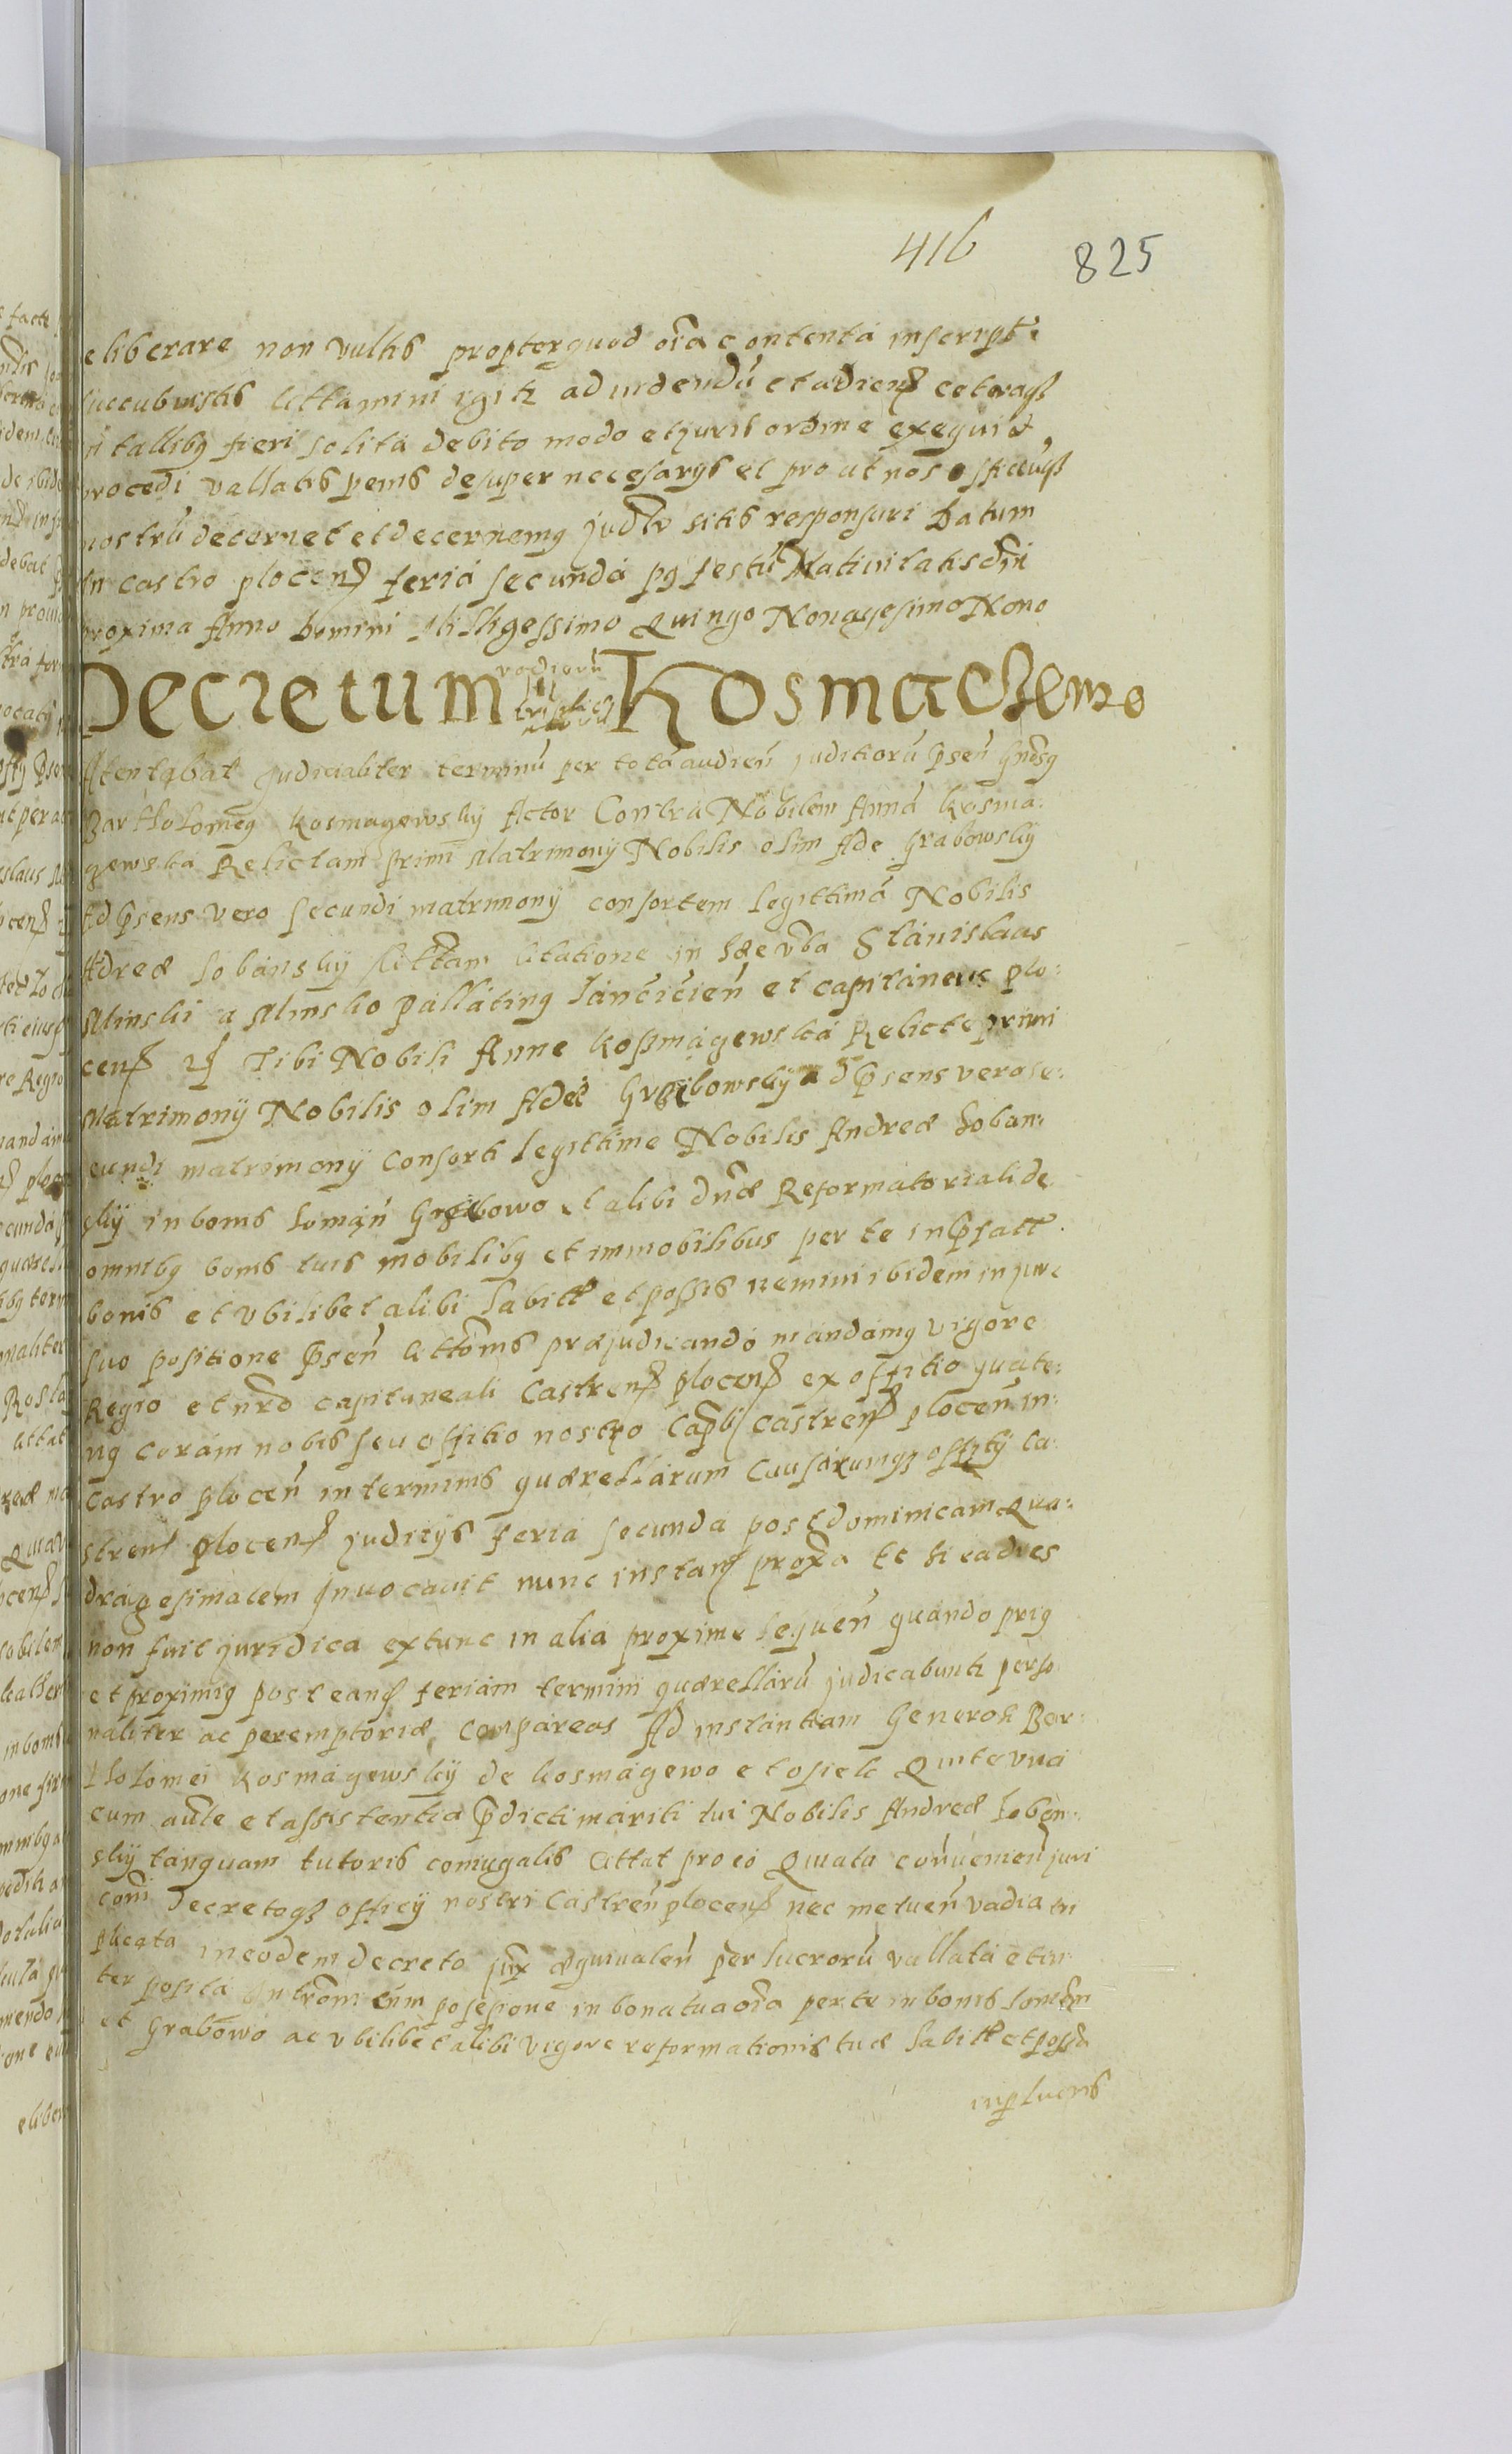 416 825
eliberare non vultis propterquod oia contenta inscripti
succubuistis Cittamini igitr ad videndu et adiend ceteraqz
in tallibq fieri solita debito modo et juris ordine exequi et
procedi vallatis penis desuper necesarys et pro ut nos officiuqz
nostru decernet et decernemq judltr sitis responsuri Datum
In castro plocens feria secunda pq festu Nativitatis dni
proxima Anno Domini Milligessimo Quingo Nonagesimo Nono
Decretum vadioru triplica Kosmaczewo
Atentabat Judicialiter terminu per tota audien juditioru psen Gnosq
Bartholomeq Kosmagewsky Actor Contra Nobilem Anna Kosma:
gewska Relictam primi Matrimony Nobilis olim Ade Grabowsky
Ad psens vero secundi matrimony consortem legittima Nobilis
Adreæ Lobansky Cittam Citatione in hæc vba Stanislaus
Minski a Minsko Pallatinq Lancicien et capitaneus plo:
cens Tibi Nobili Anne Kossmagewska Relicte primi
Matrimony Nobilis olim Adæ Grabowsky ad psens vero se:
cundi matrimony Consorti legittime Nobilis Andreæ Loban:
sky in bonis Grabowo et alibi dnæ Reformatoriali de
omnibq bonis tuis mobilibq et immobilibus per te in pfatt
bonis et vbilibet alibi habitt et possis nemini ibidem in jure
suo positione psen Cittonis præjudicando mandamq vigore
Regio et nro capitaneali Castrens plocens ex offitio quate:
nq coram nobis seu offitio nostro Castren plocen in
Castro plocen in terminis quærellarum Causarumqz offity Ca
strens plocens juditys feria secunda post dominicam Qua:
dragesimalem Invocavit nunc instan proxa Et si ea dies
non fuit juridica extunc in alia proxime sequen quando priq
et proximiq posteaqz feriam termini quærellaru judicabuntr perso
naliter ac peremptoriæ compareas Ad instantiam Generosi Bar:
tholomei Kosmagewsky de Kosmagewo et osiek Qui te vna
cum autte et assistentia pdicti mariti tui Nobilis Andreæ Loban:
sky tanquam tutoris coniugalis Cittat pro eo Quata convenien juri
coni Decretoqz officy nostri Castren plocens nec metuen vadia tri
plicata in eodem decreto juxta æquivalen per lucroru vallata et in
ter posita Intromonem posesione in bona tua oia per te in bonis
et Grabowo ac vbilibet alibi vigore reformationis tuæ habitt et possa
in plucris